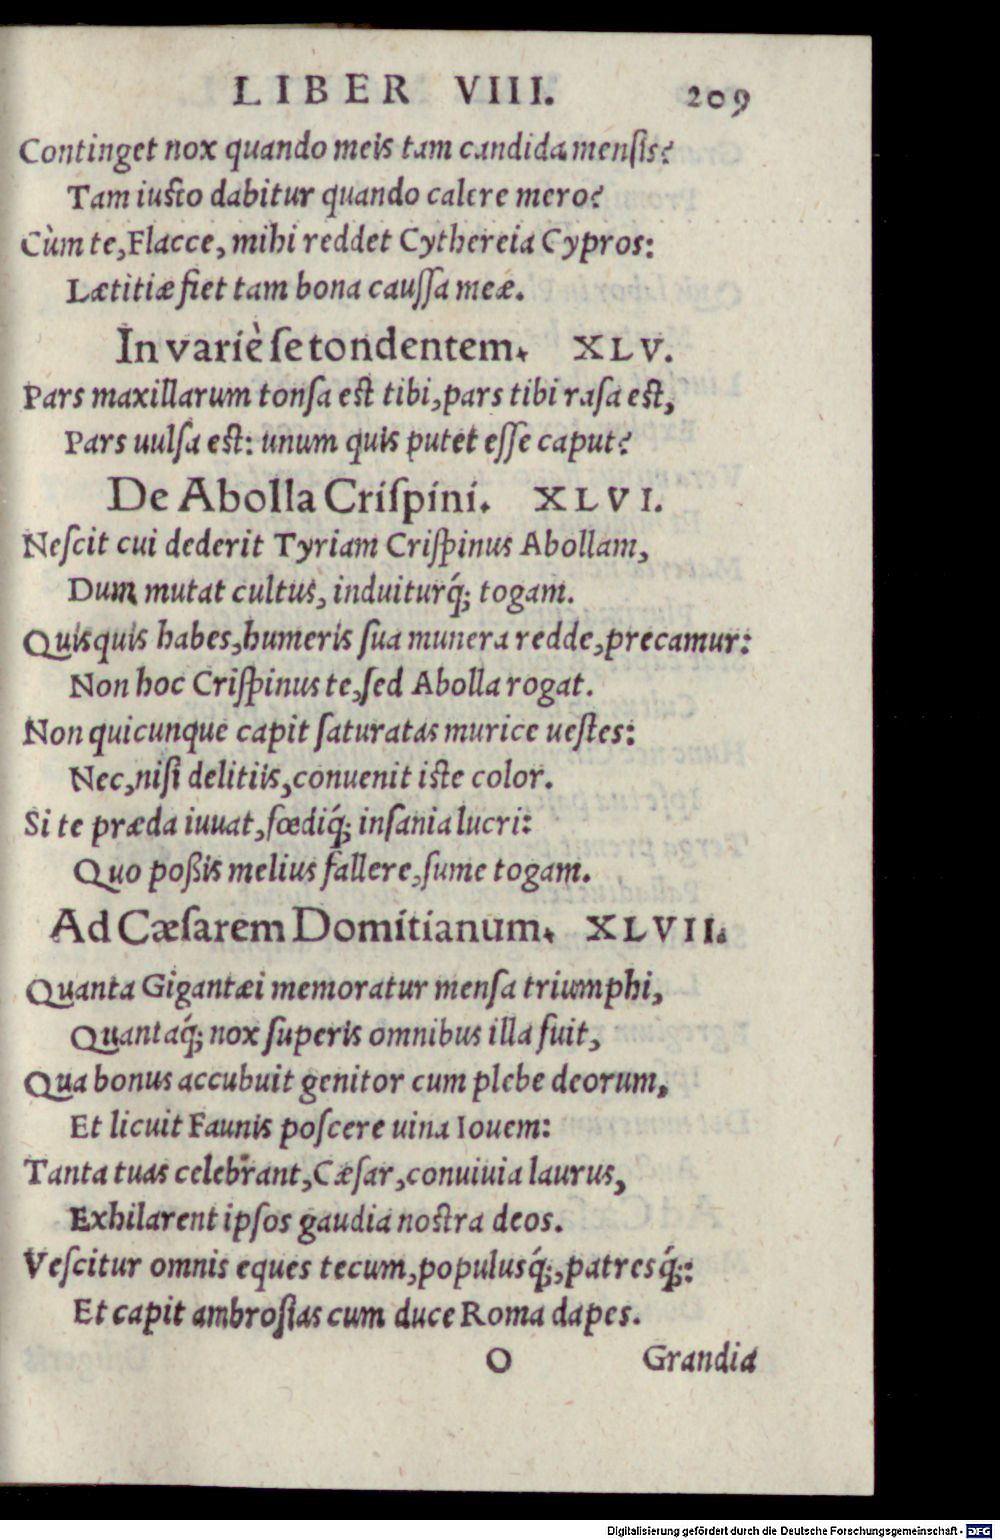 LIBER VIII. 209
Continget nox quando meis tam candida mensis?
Tam iusto dabitur quando calere mero?
Cùm te, Flacce, mihi reddet Cythereia Cypros:
Lætitiæ fiet tam bona caussa meæ.
In variè se tondentem. XLV.
Pars maxillarum tonsa est tibi, pars tibi rasa est,
Pars uulsa est: unum quis putet esse caput?
De Abolla Crispini. XLVI.
Nescit cui dederit Tyriam Crispinus Abollam,
Dum mutat cultus, induiturq́; togam.
Quisquis habes, humeris sua munera redde, precamur:
Non hoc Crispinus te, sed Abolla rogat.
Non quicunque capit saturatas murice uestes:
Nec, nisi delitiis, conuenit iste color.
Si te præda iuuat, fœdiq́; insania lucri:
Quo poßis melius fallere, sume togam.
Ad Cæsarem Domitianum. XLVII.
Quanta Gigantæi memoratur mensa triumphi,
Quantaq́; nox superis omnibus illa fuit,
Qua bonus accubuit genitor cum plebe deorum,
Et licuit Faunis poscere uina Iouem:
Tanta tuas celebrant, Cæsar, conuiuia laurus,
Exhilarent ipsos gaudia nostra deos.
Vescitur omnis eques tecum, populusq́;, patresq́;:
Et capit ambrosias cum duce Roma dapes.
O Grandia
Digitalisierung gefördert durch die Deutsche Forschungsgemeinschaft - DFG